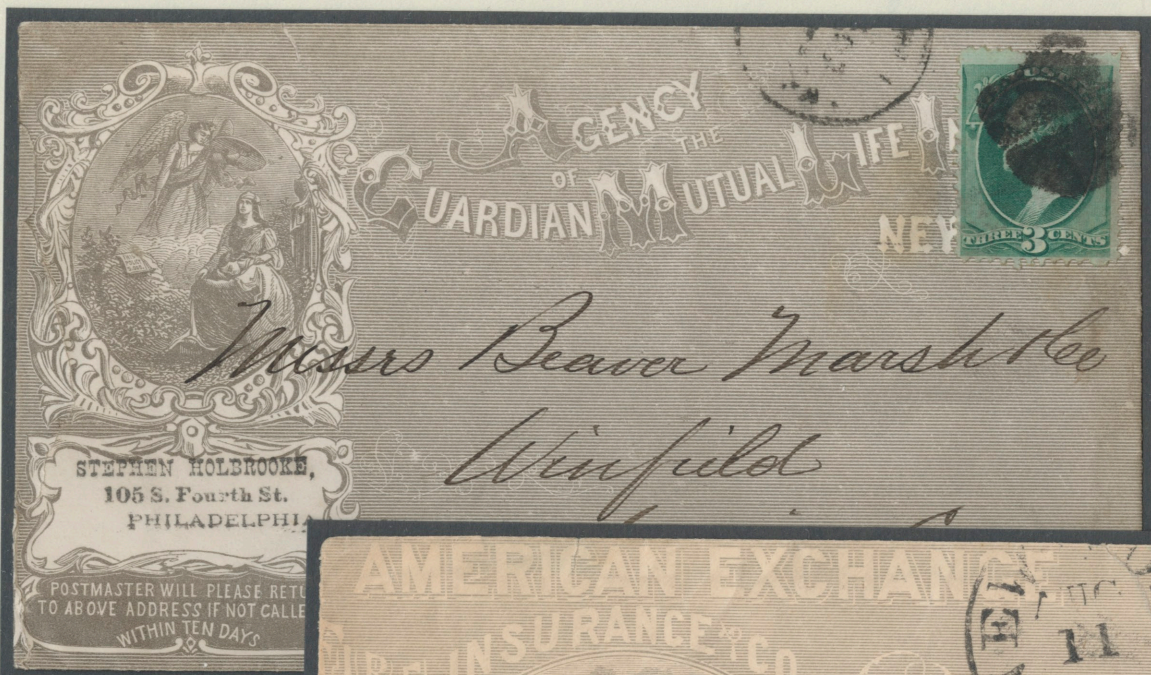 AGENCY
OF THE
GUARDIAN MUTUAL LIFE
THREE 3 CENTS
Messrs Beaver Marsh & Co
Winfield
STEPHEN HOLBROOKE,
105 S. Fourth St.
PHILADELPHIA
POSTMASTER WILL PLEASE RETU
TO ABOVE ADDRESS IF NOT CALLE
WITHIN TEN DAYS
AMERICAN EXCHANGE
FIRE INSURANCE CO
NEW
AUG
11